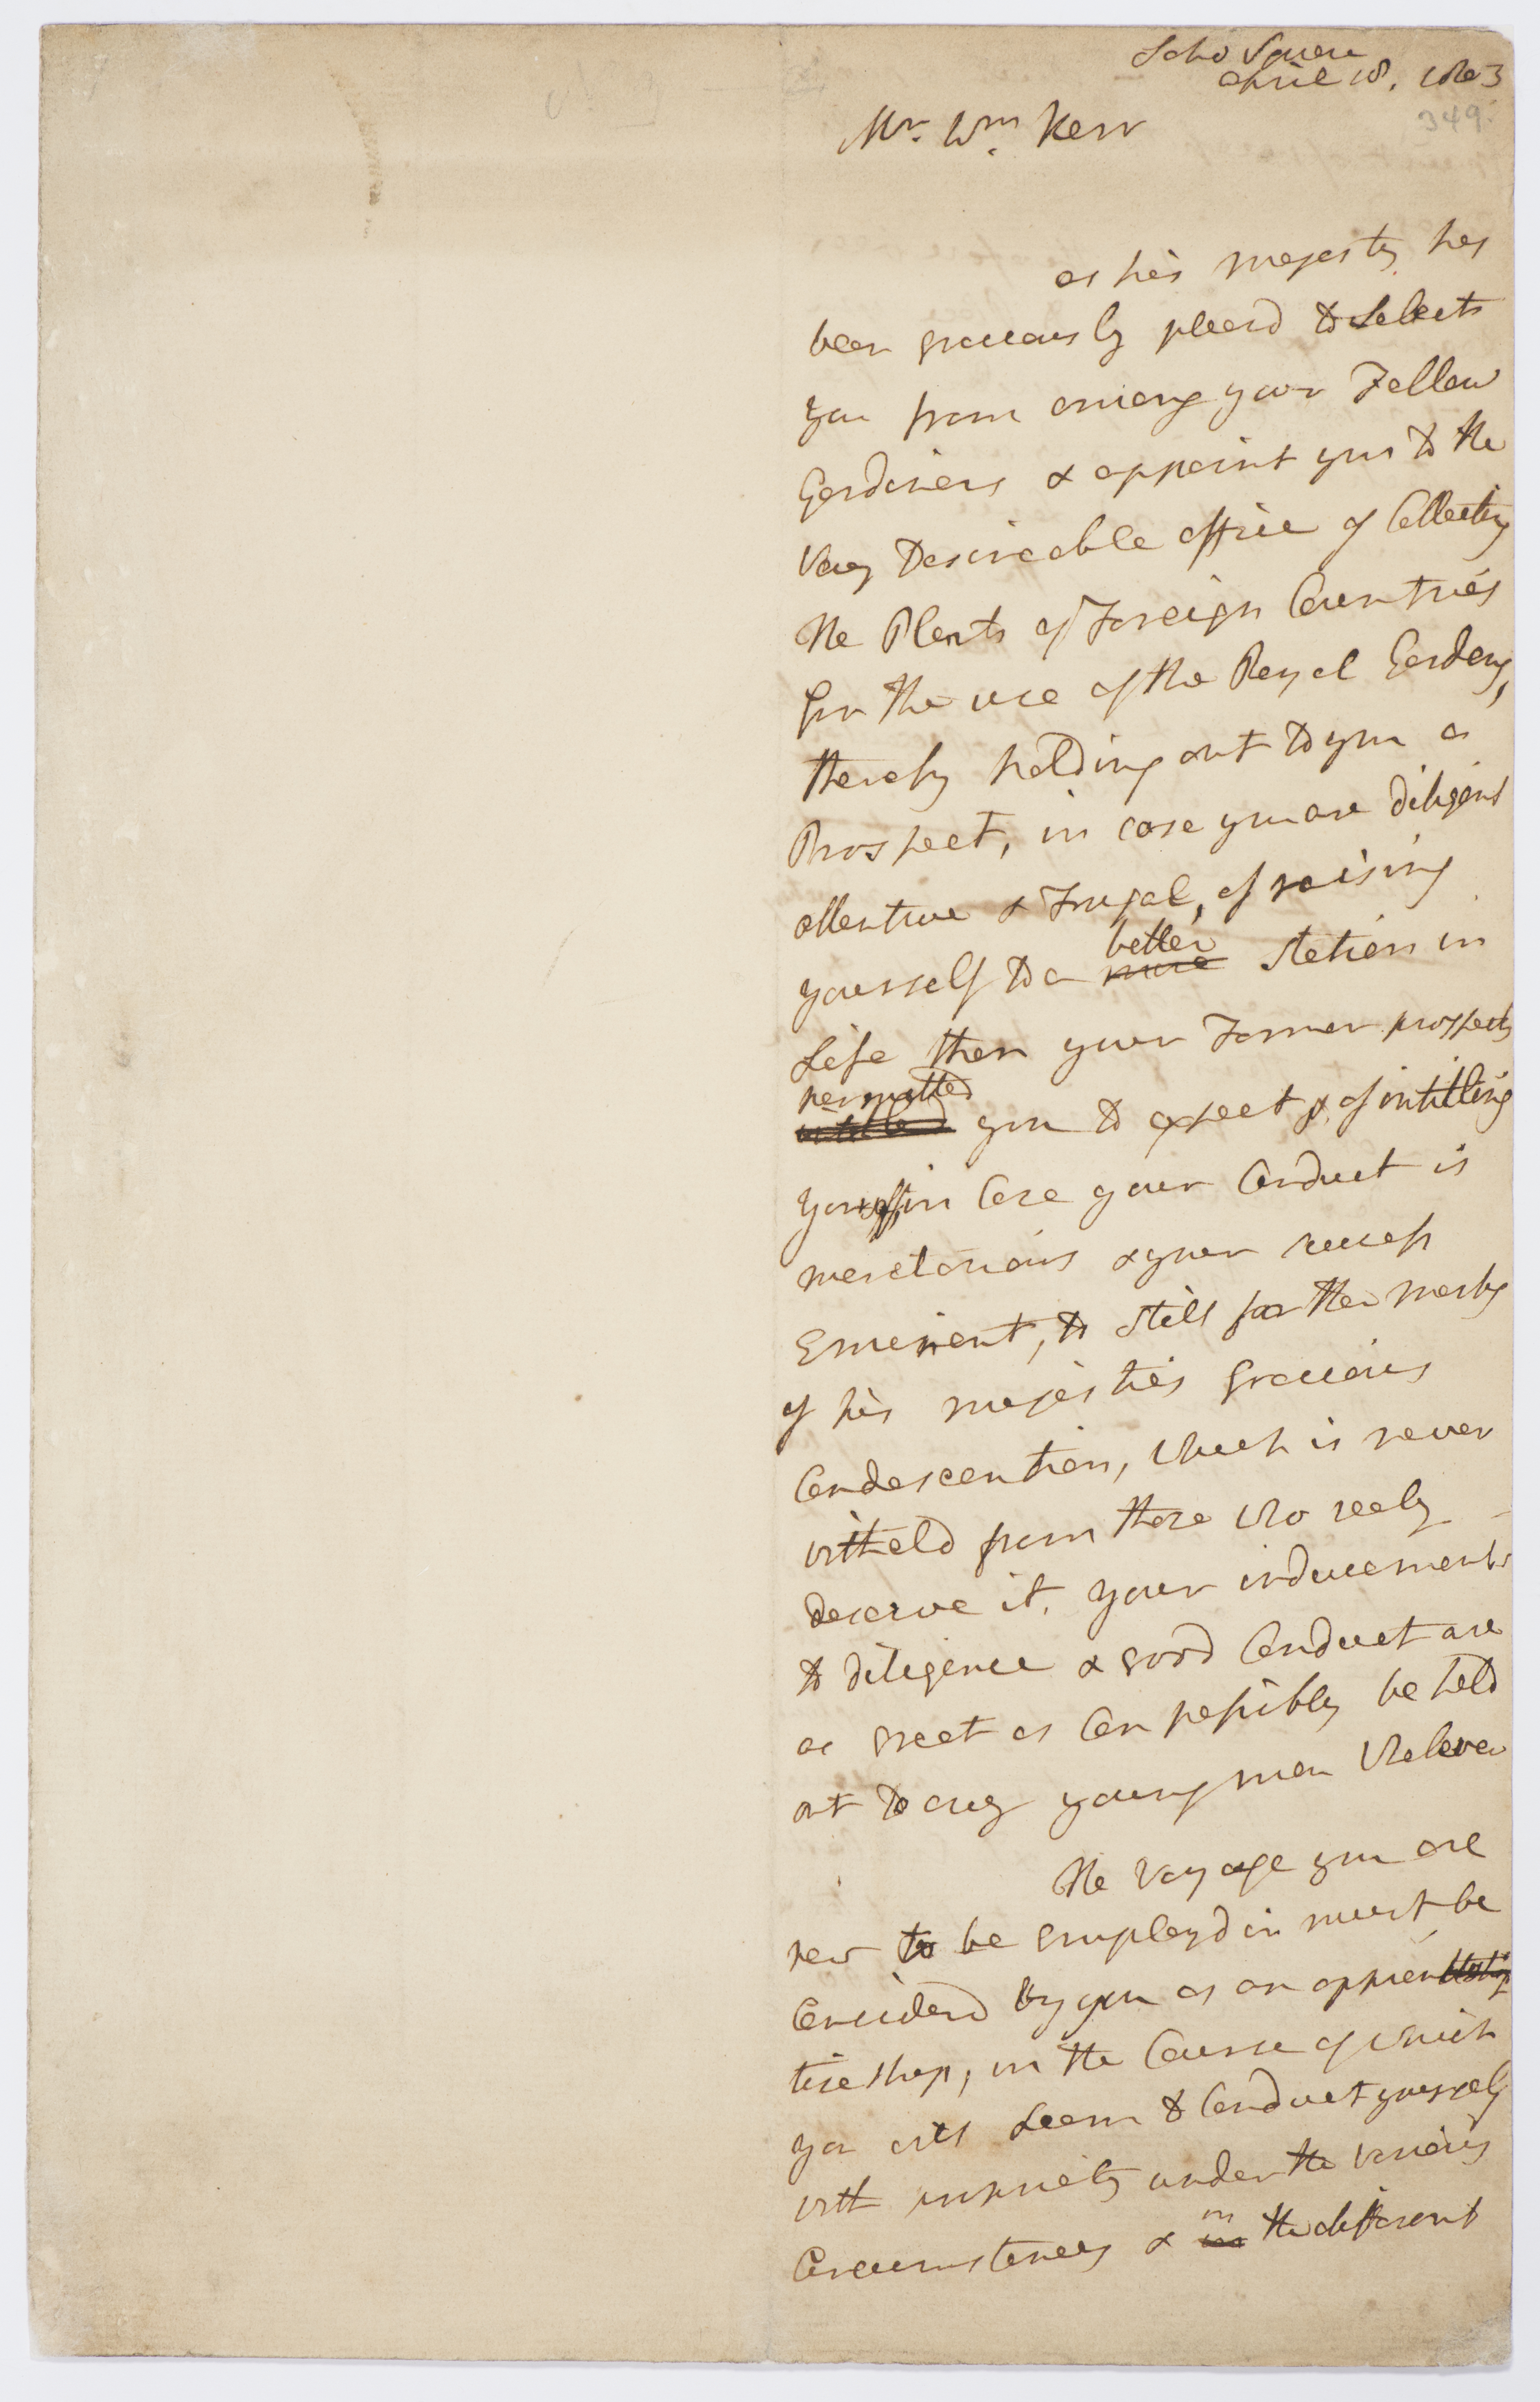 Soho Square
April 18. 1803
349.
Mr. Wm. Kerr
as his Majesty has
been graciously pleasd to Select
you from among your Fellow
Gardiners & appoint you to the
Very Desireable office of Collecting
the Plants of Foreign Countries
for the use of the Royal Gardens,
thereby holding out to you a
Prospect, in case you are diligent
attentive & Frugal, of raising
better
yourself to a more Station in
Life than your Former prospects
permitted
intitled you to expect & of intitling
yourself, in Case your Conduct is
meretorious & your success
Eminent, to still farther marks
of his majesties Gracious
Condescention, which is never
witheld from those who realy
deserve it. your inducements
to diligence & good Conduct are
as great as Can possibly be held
out to any young man Whatever
The Voyage you are
now to be Employd in must be
Considerd by you as an appren
tiseship, in the Course of which
you will Learn to Conduct yourself
with propriety under the various
Circumstances & in the different